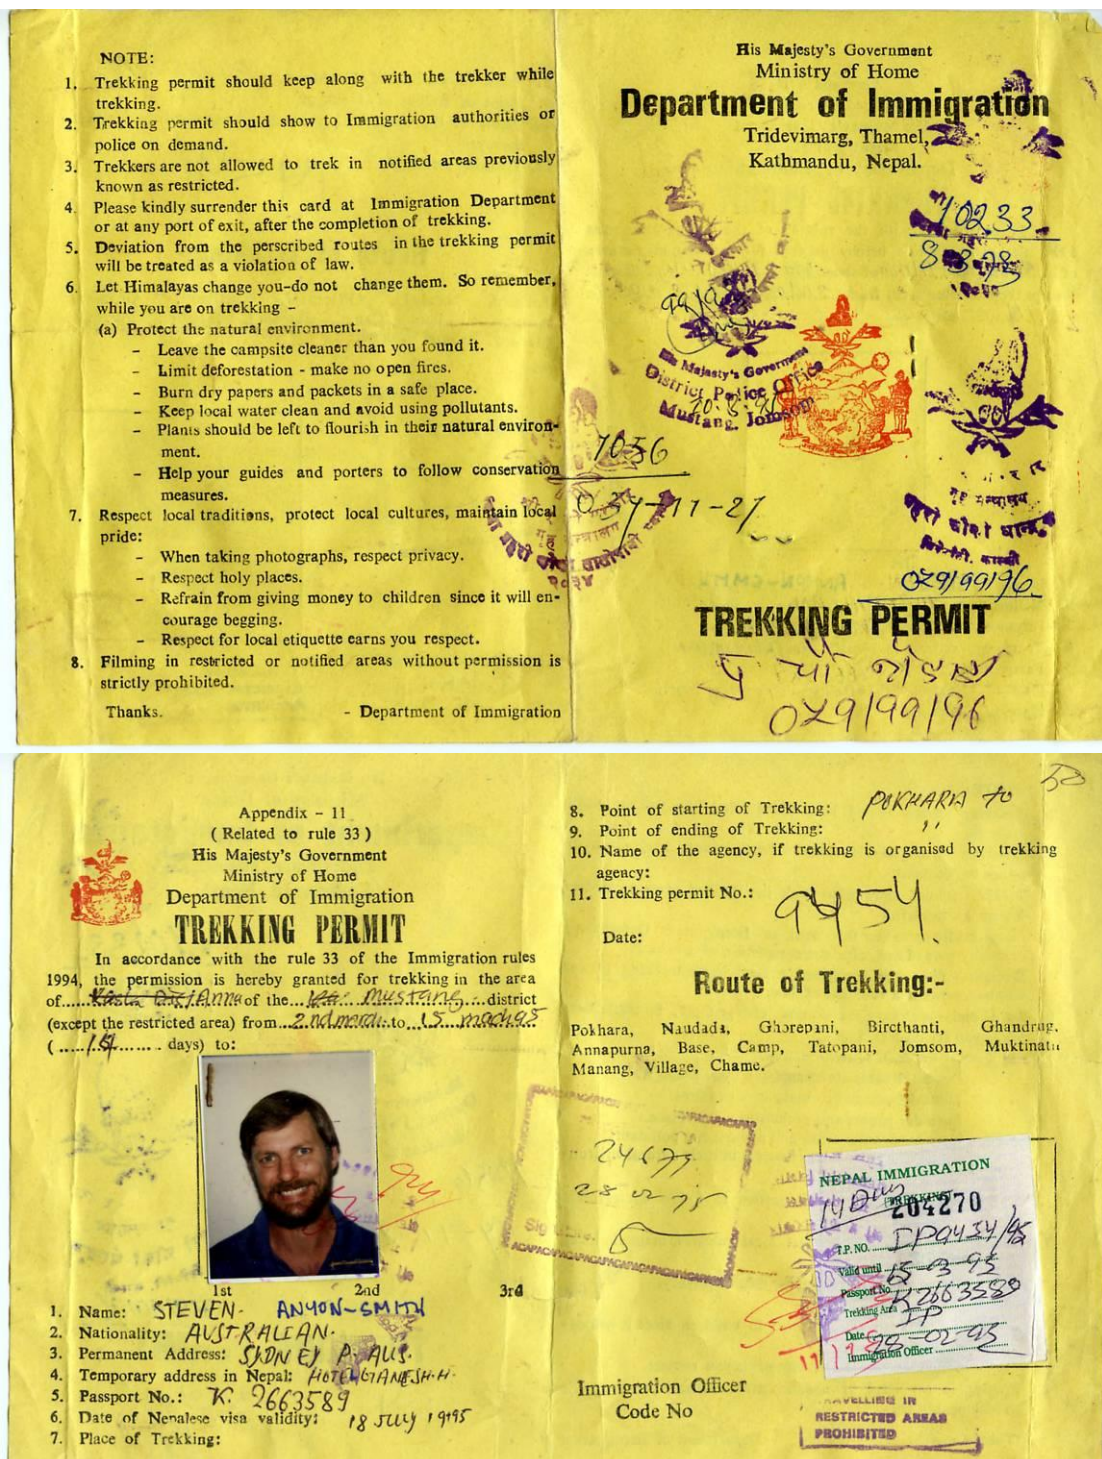 NOTE:
1. Trekking permit should keep along with the trekker while
trekking.
2. Trekking permit should show to Immigration authorities or
police on demand.
3. Trekkers are not allowed to trek in notified areas previously
known as restricted.
4. Please kindly surrender this card at Immigration Department
or at any port of exit, after the completion of trekking.
5. Deviation from the perscribed routes in the trekking permit
will be treated as a violation of law.
6. Let Himalayas change you-do not change them. So remember,
while you are on trekking -
(a) Protect the natural environment.
- Leave the campsite cleaner than you found it.
- Limit deforestation - make no open fires.
- Burn dry papers and packets in a safe place.
- Keep local water clean and avoid using pollutants.
- Plants should be left to flourish in their natural environ-
ment.
- Help your guides and porters to follow conservation
measures.
7. Respect local traditions, protect local cultures, maintain local
pride:
- When taking photographs, respect privacy.
- Respect holy places.
- Refrain from giving money to children since it will en-
courage begging.
- Respect for local etiquette earns you respect.
8. Filming in restricted or notified areas without permission is
strictly prohibited.
Thanks. - Department of Immigration
His Majesty's Government
Ministry of Home
Department of Immigration
Tridevimarg, Thamel,
Kathmandu, Nepal.
10233
His Majesty's Government
District Police Office
Mustang, Jomsom
7056
TREKKING PERMIT
Appendix - 11
( Related to rule 33 )
His Majesty's Government
Ministry of Home
Department of Immigration
TREKKING PERMIT
In accordance with the rule 33 of the Immigration rules
1994, the permission is hereby granted for trekking in the area
of Anna of the Mustang district
(except the restricted area) from 2nd march to 15 march 95
( 14 days) to:
1st 2nd 3rd
1. Name: STEVEN- ANYON-SMITH
2. Nationality: AUSTRALIAN.
3. Permanent Address: SYDNEY AUS.
4. Temporary address in Nepal: HOTEL GANESH.H.
5. Passport No.: K. 2663589
6. Date of Nepalese visa validity: 18 JULY 1995
7. Place of Trekking:
50
8. Point of starting of Trekking: POKHARA to
9. Point of ending of Trekking: "
10. Name of the agency, if trekking is organised by trekking
agency:
11. Trekking permit No.: 9454
Date:
Route of Trekking:-
Pokhara, Naudada, Ghorepani, Bircthanti, Ghandrug,
Annapurna, Base, Camp, Tatopani, Jomsom, Muktinath
Manang, Village, Chame.
28 02 95
NEPAL IMMIGRATION
TREKKING
14 Days 204270
T.P. NO. IP9434/95
Valid until 15-3-95
Passport No. K2663589
Trekking Area IP
Date 28-02-95
Immigration Officer
Immigration Officer
Code No
TRAVELLING IN
RESTRICTED AREAS
PROHIBITED